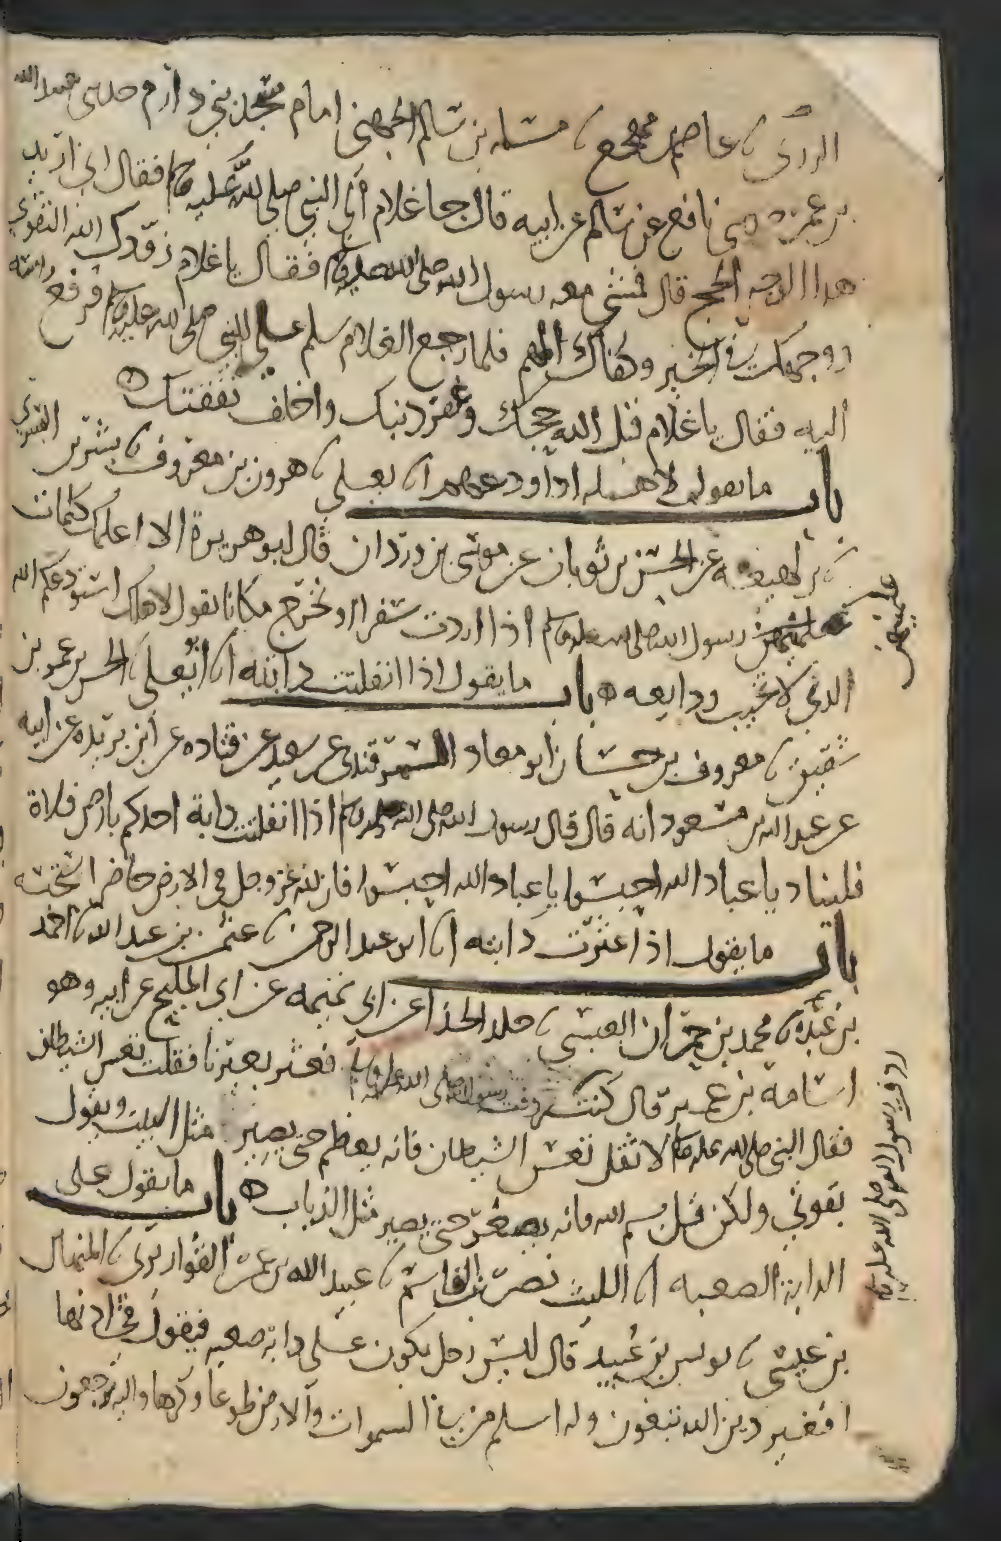 الردى نا عاصم بن مهجع نا مسلمه بن سالم الجهني امام مسجد بني دارم حدثني عبد الله
بن عمر عن نافع عن سالم عن ابيه قال جا غلام الى النبي صلى الله عليه وسلم فقال اني اريد
هذا الوجه الحج قال فمشى معه رسول الله صلى الله عليه وسلم فقال يا غلام زودك الله التقوى
ووجهك في الخير وكفاك الهم فلما رجع الغلام سلم على النبي صلى الله عليه وسلم فرفع راسه
اليه فقال يا غلام قبل الله حجك وغفر ذنبك واخلف نفقتك
باب ما يقول لاهله اذا ودعهم انا ابو يعلى نا هرون بن معروف نا بشر بن السري
نا بن لهيعه عن الحسن بن ثوبان عن موسى بن وردان قال ابو هريرة الا اعلمك كلمات
علمنيهن رسول الله صلى الله عليه وسلم اذا اردت سفرا او تخرج مكانا تقول لاهلك استودعكم الله
الذي لا تخيب ودايعه باب ما يقول اذا انفلتت دابته انا ابو يعلى نا الحسن بن عمر بن
شقيق نا معروف بن حسان ابو معاد السمرقندي عن سعيد عن قتاده عن ابن بريده عن ابيه
عن عبد الله بن مسعود انه قال قال رسول الله صلى الله عليه وسلم اذا انفلتت دابة احدكم بارض فلاة
فليناد يا عباد الله احبسوا يا عباد الله احبسوا فان لله عز وجل في الارض حاضرا سيحبسه
باب ما يقول اذا عثرت دابته انا ابو عبد الرحمن نا عثمن بن عبد الله نا احمد
بن عبدة نا محمد بن حمران القيسي نا خلد الحذا عن ابي تميمه عن ابي المليح عن ابيه وهو
اسامة بن عمير قال كنت ردف رسول الله صلى الله عليه وسلم فعثر بعيرنا فقلت تعس الشيطان
فقال النبي صلى الله عليه وسلم لا تقل تعس الشيطان فانه يعظم حتى يصير مثل البيت ويقول
بقوتي ولكن قل بسم الله فانه يصغر حتى يصير مثل الذباب باب ما يقول على
الدابة الصعبه انا الليث نصر بن القاسم نا عبيد الله بن عمر القواريرى نا المنهال
بن عيسى نا يونس بن عبيد قال ليس رجل يكون على دابة صعبه فيقول في اذنها
افغير دين الله تبغون وله اسلم من في السموات والارض طوعا وكرها واليه ترجعون
علمنيهن
ردف رسول الله صلى الله عليه وسلم